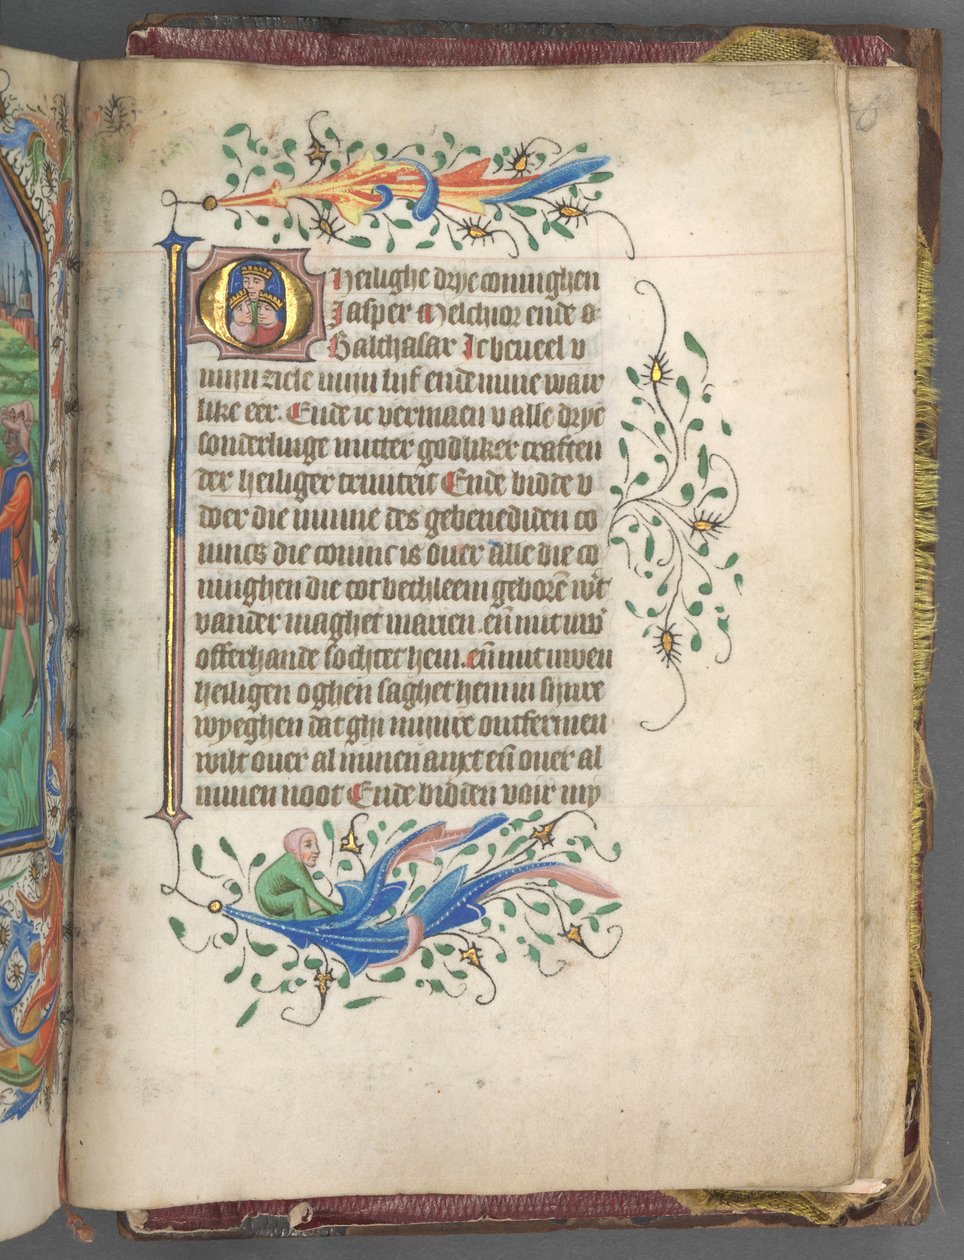 222
O heilighe drye coninghen
Jasper Melchior ende
Balthasar Ic beveel v
mijn ziele mijn lijf ende mine waer
like eer. Ende ic vermaen v alle drye
sonderlinge mitter godliker craften
der heiliger triniteit Ende bidde v
doer die minne des gebenediden co
nincs die conincis ouer alle die co
ninghen die tot bethleem geborē wt
vander maghet marien. eñ mit uw
offerhande sochtet hem. eñ mit uwen
heiligen oghen saghet hem in sijnre
wyeghen dat ghi mijnre ontfermen
wilt ouer al minen anxt eñ ouer al
minen noot Ende bidden voir my